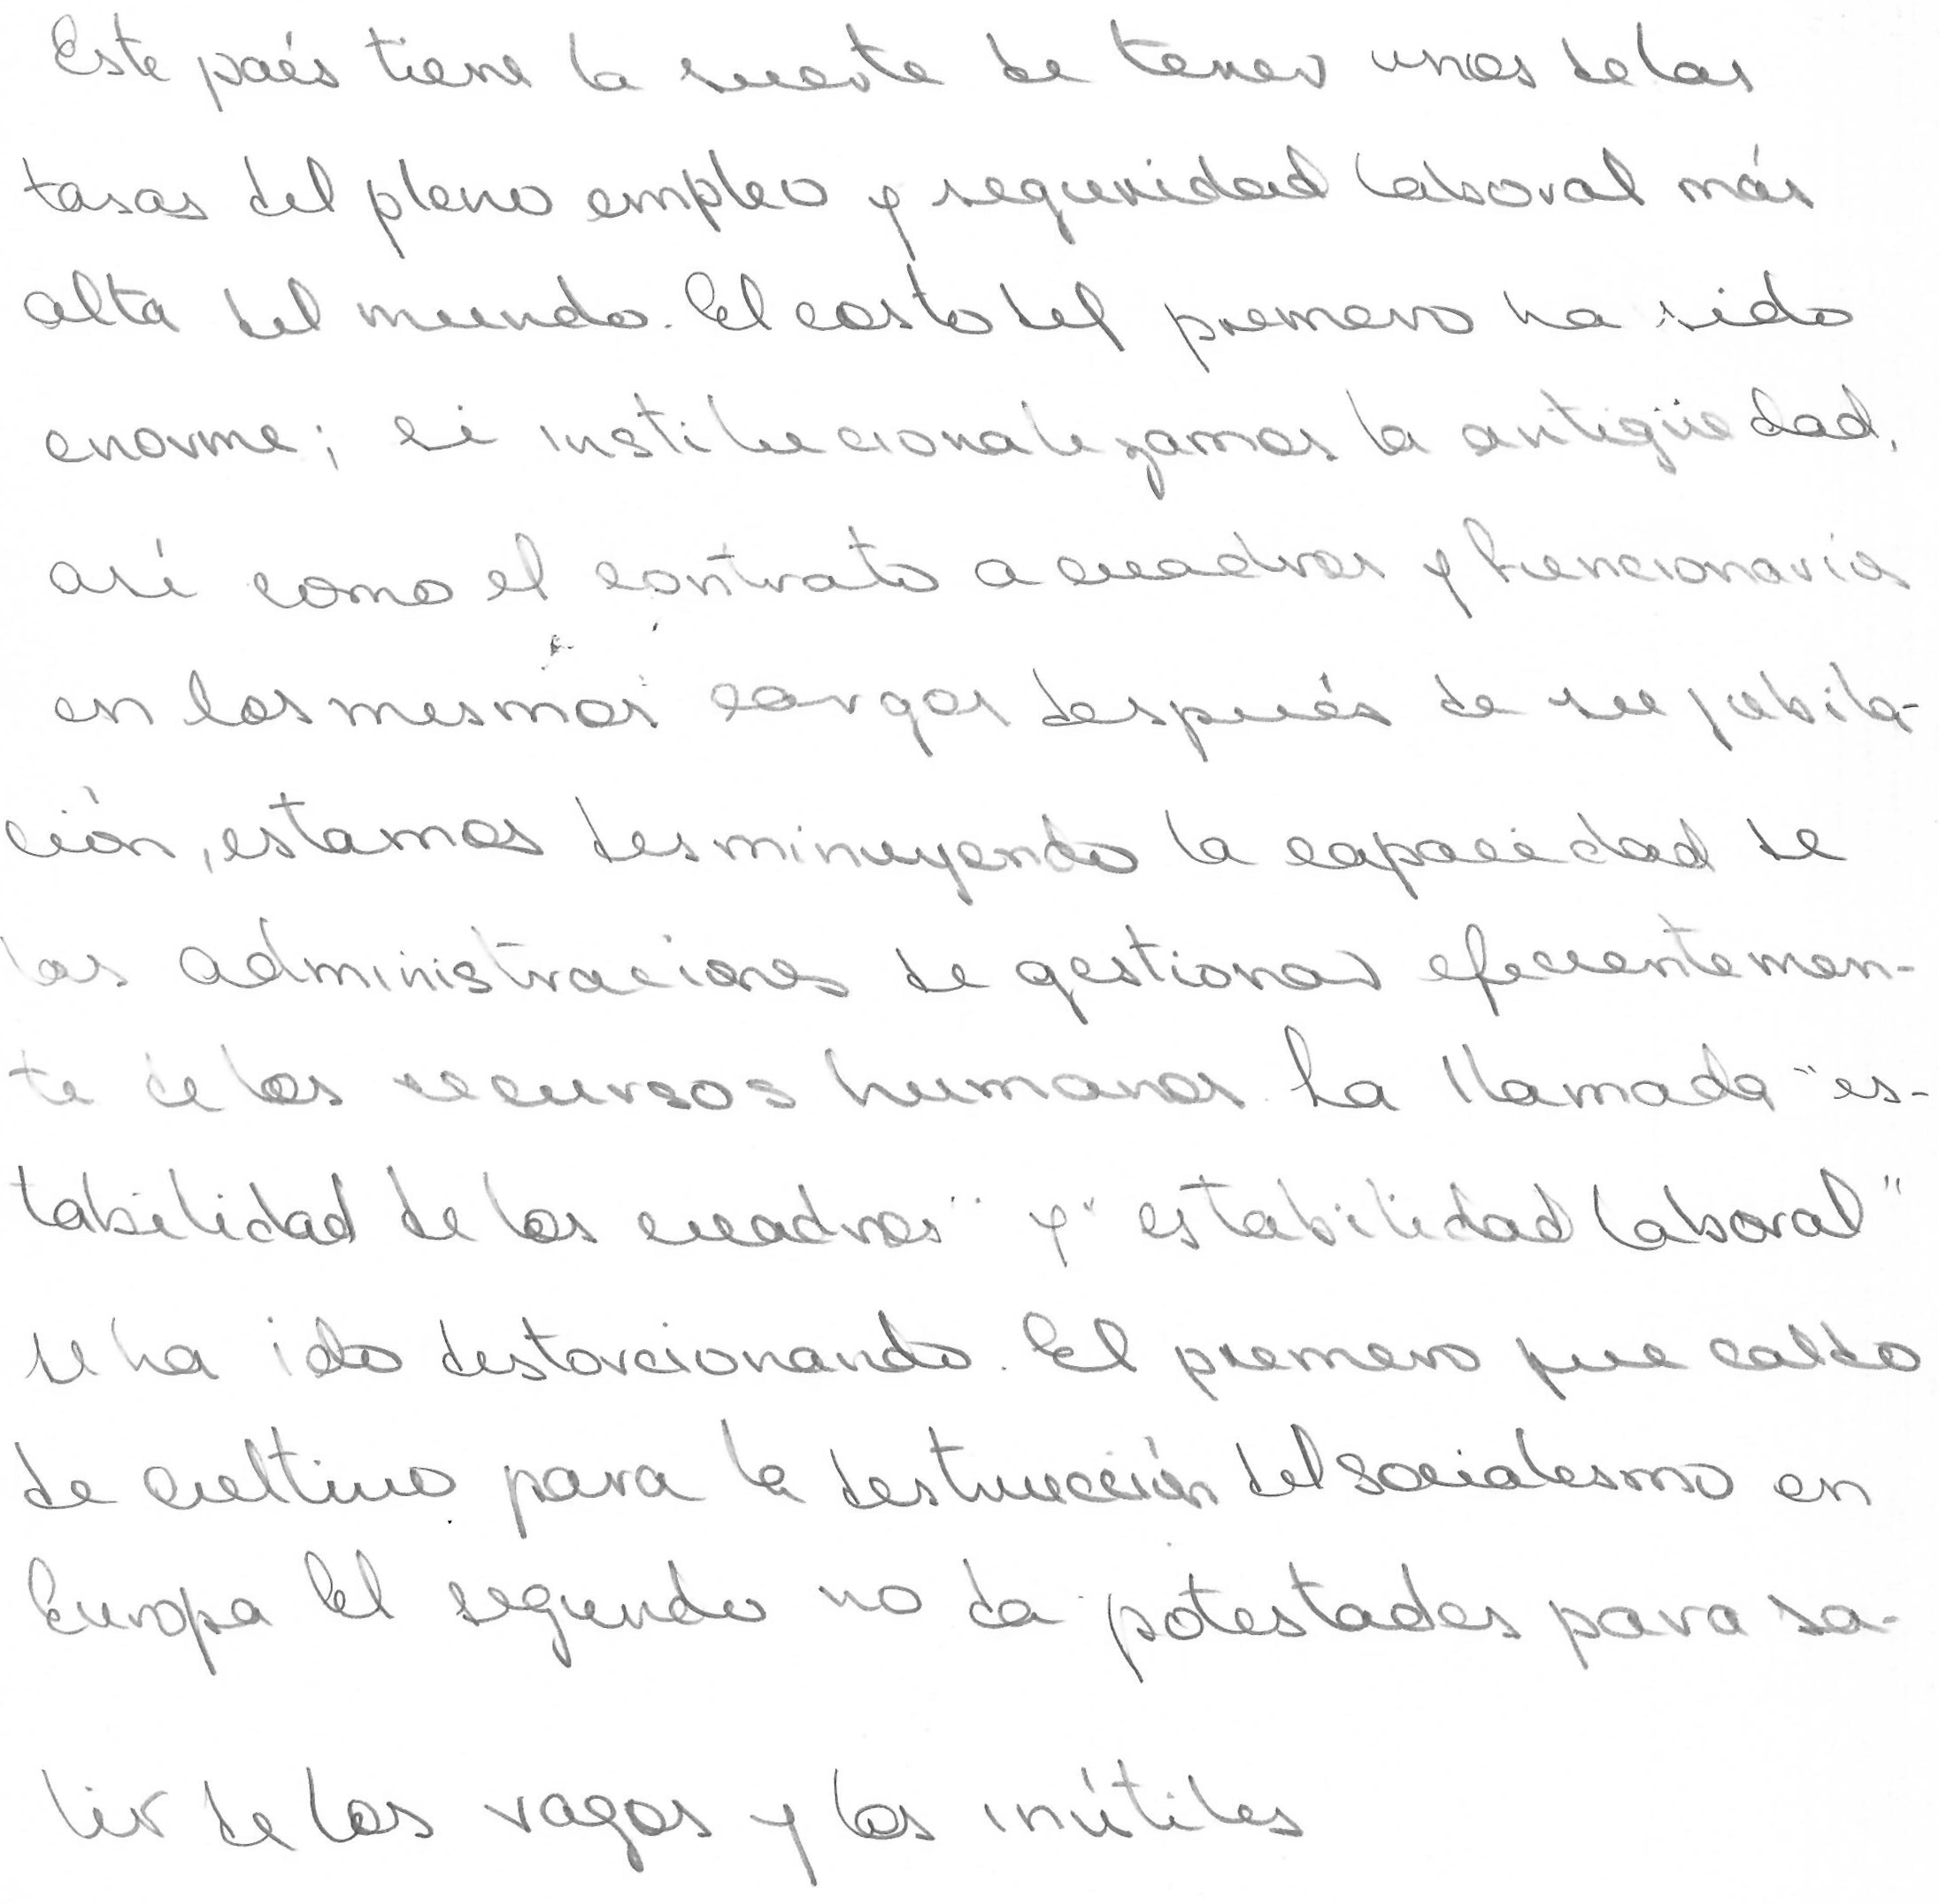 Este país tiene la suerte de tener unas de las
tasas del pleno empleo y seguridad laboral más
alta del mundo. El costo del primero ha sido
enorme; si institucionalizamos la antigüedad,
así como el contrato a cuadros y funcionarios
en los mismos cargos después de su jubila-
ción, estamos desminuyendo la capacidad de
las administraciones de gestionar eficientemen-
te de los recursos humanos. La llamada "es-
tabilidad de los cuadros" y "estabilidad laboral"
se ha ido destorcionando. El primero fue caldo
de cultivo para la destrucción del socialismo en
Europa El segundo no da potestades para sa-
lir de los vagos y los inútiles